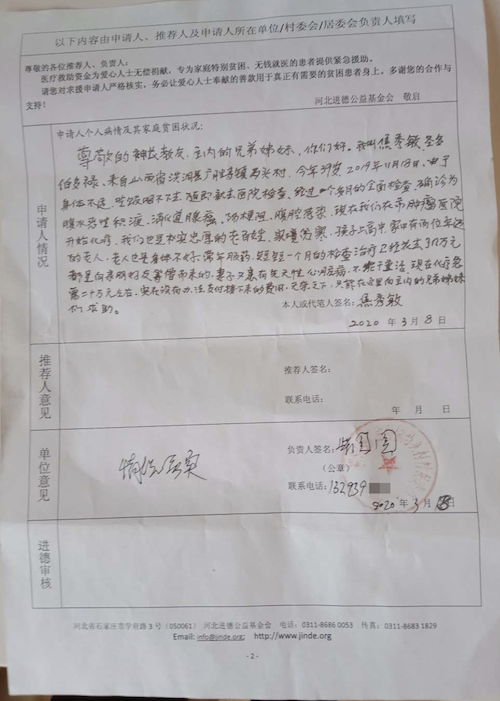 以下内容由申请人、推荐人及申请人所在单位/村委会/居委会负责人填写
尊敬的各位推荐人、负责人:
医疗救助资金为爱心人士无偿捐献,专为家庭特别贫困,无钱就医的患者提供紧急援助。
请您对求援申请人严格核实,务必让爱心人士奉献的善款用于真正有需要的贫困患者身上,多谢您的合作与
支持!
河北进德公益基金会 敬启
申请人情况
申请人个人病情及其家庭贫困状况:
尊敬的神长教友,主内的兄弟姊妹,你们好。我叫焦秀敏圣名
伯多禄,来自山西省洪洞县广胜寺镇马头村,今年39岁2019年11月18日,由于
身体不适,吃饭咽不下去,随即就去医院检查,经过一个多月的全面检查,确诊为
腹水恶性积液,消化道肿瘤,肠梗阻,腹腔感染,现在我们在市肿瘤医院
开始化疗,我们也是忠实忠厚的老百姓,家境伤寒,孩子上高中,家中有两位年迈
的老人,老人也是身体不好,常年服药,短短一个月的检查治疗已经花去了10万元
都是向亲朋好友筹借而来的,妻子又患有先天性心脏病,不能干重活,现在化疗急
需二十万元左右,实在没有办法支付接下来的费用,无奈之下,只能在这里向主内的兄弟姊妹
们求助。
本人或代笔人签名:焦秀敏
2020 年 3 月 8 日
推荐人意见
推荐人签名:
联系电话:
年 月 日
单位意见
情况属实
负责人签名:
(公章)
联系电话:132939
2020 年 3 月
日
进德审核
河北省石家庄市学府路 3 号(050061) 河北进德公益基金会 电话:0311-8686 0053 传真:0311-8683 1829
Email: info@jinde.org; http://www.jinde.org
- 2 -